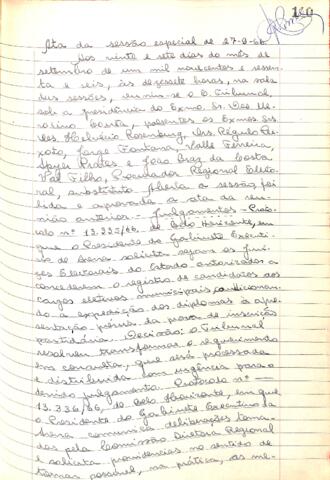 120
Ata da sessão especial de 27-9-66
Aos vinte e sete dias do mês de
setembro de um mil novecentos e sessen-
ta e seis, às dezessete horas, na sala
das sessões, reuniu-se o Tribunal,
sob a presidência do Exmo. Sr. Des. Me-
rolino Corrêa, presentes os Exmos Srs
Des. Helvécio Rosenburg, Drs. Régulo Pei-
xoto, Jorge Fontana, Valle Ferreira,
Prates e João Braz da Costa
Val Filho, Procurador Regional Eleito-
ral, substituto. Aberta a sessão, foi
lida e aprovada a ata da reu-
nião anterior. - Julgamentos - Proto-
colo nº 13.337/66, de Belo Horizonte, em
que o Presidente do Gabinete Executi-
vo da Arena solicita sejam os Juí-
zes Eleitorais do Estado autorizados a
concederem o registro de candidatos aos
cargos eletivos municipais, condicionan-
do a expedição dos diplomas à apre-
sentação prévia da prova de inscrição
partidária. Decisão: o Tribunal
resolveu transformar o requerimento
em consulta, que será processada
e distribuída com urgência para o
devido julgamento. Protocolo nº -
13.336/66, de Belo Horizonte, em que
o Presidente do Gabinete Executivo da
Arena comunica deliberações toma-
das pela Comissão Diretora Regional
e solicita providências no sentido de
tornar possível, na prática, as me-